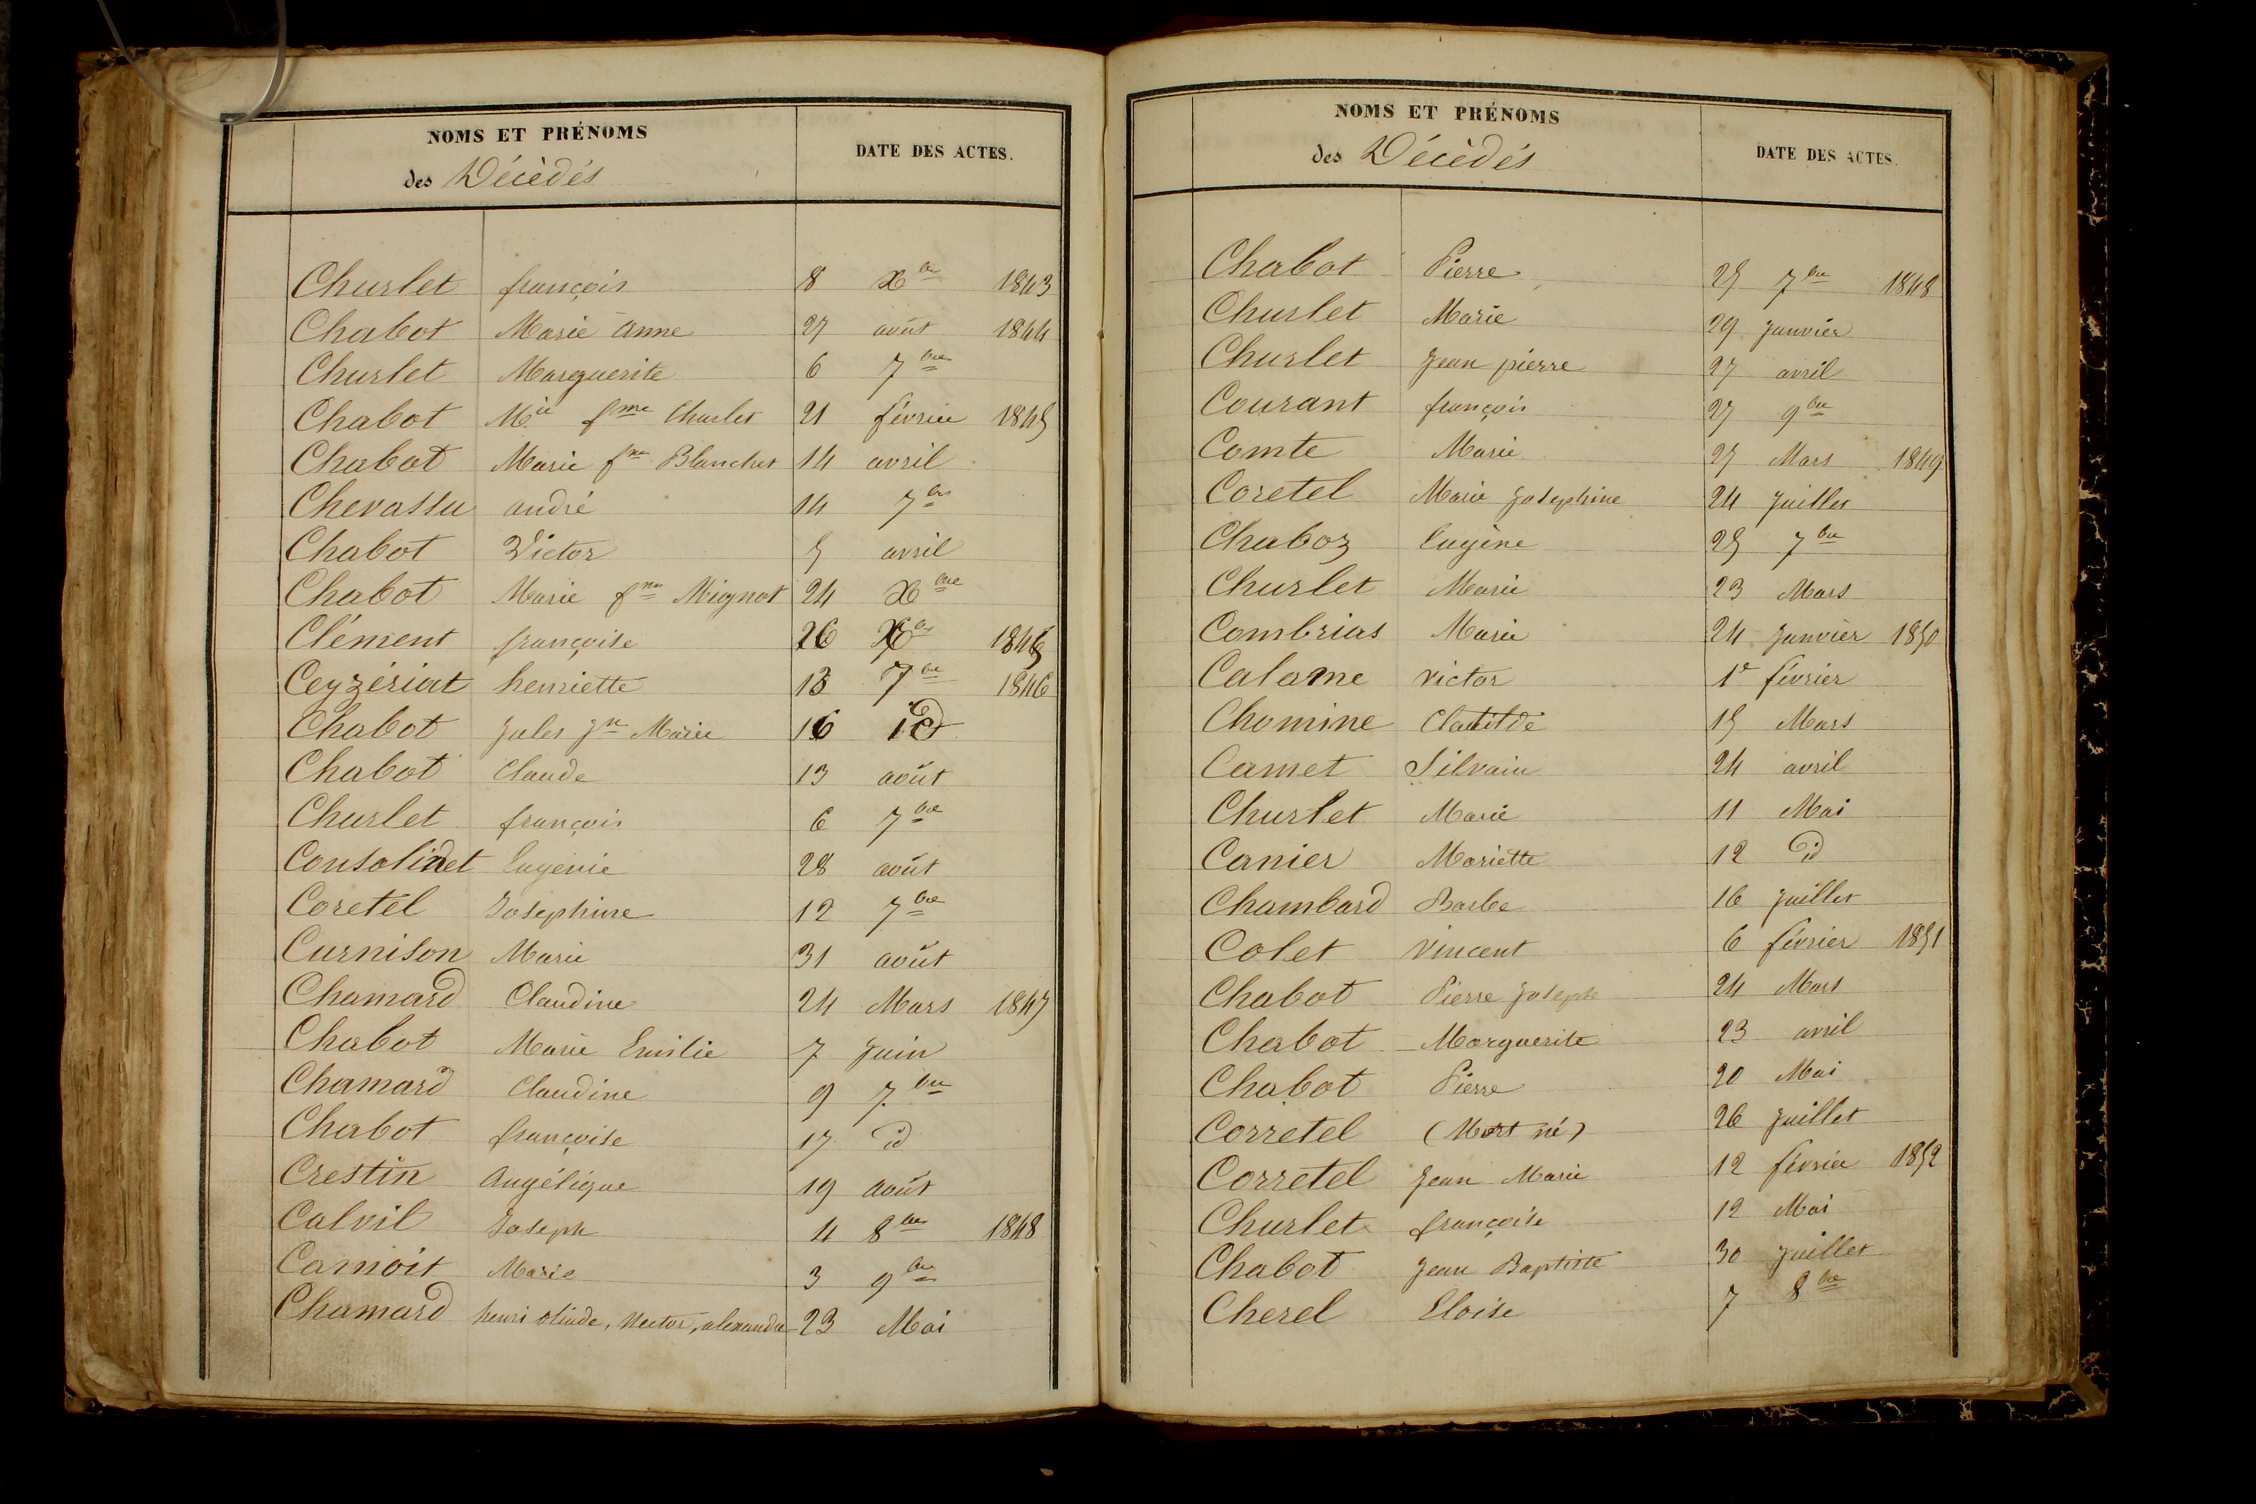 NOMS ET PRÉNOMS
des Décèdés
DATE DES ACTES.
Churlet françois 8 Xbre 1843
Chabot Marie anne 27 août 1844
Churlet Marguerite 6 7bre
Chabot Mie fme Churlet 21 février 1845
Chabot Marie fme Blanchet 14 avril
Chevassu andré 14 7bre
Chabot Victor 5 avril
Chabot Marie fme Mignot 24 Xbre
Clément françoise 26 Xbre 1845
Ceyzériat henriette 13 7bre 1846
Chabot Jules Jn Marie 16 id
Chabot Claude 13 août
Churlet françois 6 7bre
Consolindet Eugénie 28 août
Coretel Josephine 12 7bre
Curnison Marie 31 août
Chamard Claudine 24 Mars 1847
Chabot Marie Emilie 7 Juin
Chamard Claudine 9 7bre
Chabot françoise 17 id
Crestin Angélique 19 août
Calvil Joseph 4 8bre 1848
Carnoit Marie 3 9bre
Chamard henri olinde, Nector, alexandre 23 Mai
NOMS ET PRÉNOMS
des Décèdés
DATE DES ACTES.
Chabot Pierre 25 7bre 1848
Churlet Marie 29 Janvier
Churlet Jean pierre 27 avril
Courant françois 27 9bre
Comte Marie 27 Mars 1849
Coretel Marie Josephine 24 Juillet
Chaboz Eugène 25 7bre
Churlet Marie 23 Mars
Combrias Marie 24 Janvier 1850
Calame victor 1r février
Chomine Clautilde 15 Mars
Camet Silvain 24 avril
Churlet Marie 11 Mai
Canier Mariette 12 id
Chambard Barbe 16 Juillet
Colet Vincent 6 février 1851
Chabot Pierre Joseph 24 Mars
Chabot Marguerite 23 avril
Chabot Pierre 20 Mai
Corretel (Mort né) 26 Juillet
Corretel Jean Marie 12 février 1852
Churlet françoise 12 Mai
Chabot Jean Baptiste 30 Juillet
Cherel Eloise 7 8bre